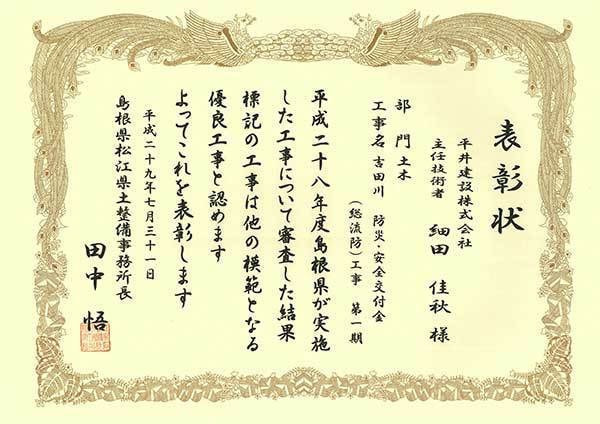 表彰状
平井建設株式会社
主任技術者　細田　佳秋　様
部　門　土木
工事名　吉田川　防災・安全交付金
(総流防)工事　第一期
平成二十八年度島根県が実施
した工事について審査した結果
標記の工事は他の模範となる
優良工事と認めます
よってこれを表彰します
平成二十九年七月三十一日
島根県松江県土整備事務所長
田中　悟